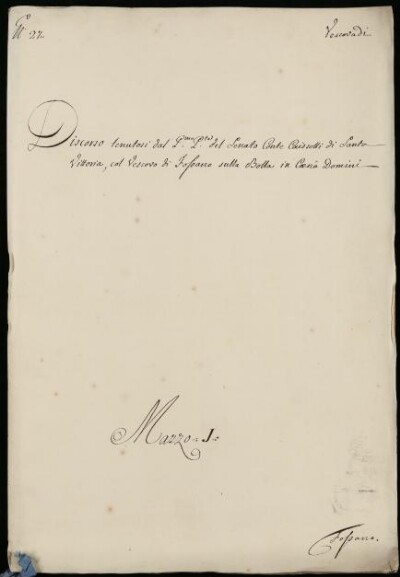 N.° 27.
Vescovadi
Discorso tenutosi dal P.mo P.te del Senato Conte Caissotti di Santa
Vittoria, col Vescovo di Fossano sulla Bolla in Cœna Domini
Mazzo = 1 =
Fossano.